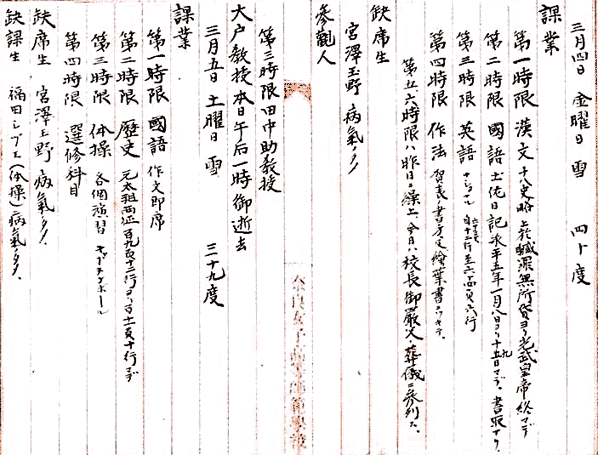 三月四日 金曜日 雪 四十度
課業
第一時限 漢文 十八史略 無所貸ヨリ光武皇帝終マデ
第二時限 國語 土佐日記 承平五年一月八日ヨリ十九日マデ、書取アリ
第三時限 英語
第四時限 作法 賀表書方ト繪葉書ニツキテ、
第五六時限ハ昨日ニ繰上、今日ハ校長御嚴父ノ葬儀ニ參列ス、
缺席生
宮澤玉野 病氣ノタメ
參觀人
第三時限田中助教授
大戸教授本日午后一時御逝去
三月五日 土曜日 雪 三十九度
課業
第一時限 國語 作文即席
第二時限 歷史 元太祖西征 百九頁十二行ヨリ百十一頁十行マデ
第三時限 体操 各個演習 キャプテンボール
第四時限 選修科目
缺席生 宮澤玉野 病氣ノタメ、
缺課生 福田シヅエ(体操)病氣ノタメ、
奈良女子高等師範學校